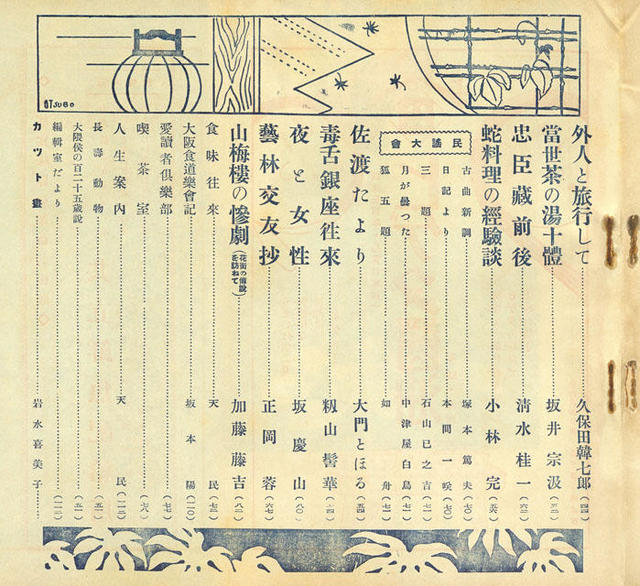 外人と旅行して……久保田韓七郎(四四)
當世茶の湯十體……坂井宗汲(五二)
忠臣藏前後……清水桂一(六二)
蛇料理の經驗談……小林完(五六)
民謠大會
古曲新調……塚本篤夫(七〇)
日記より……本間一咲(七〇)
三題……石山巳之吉(七一)
月が曇つた……中津屋白鳥(七一)
狐五題……如舟(七一)
佐渡たより……大門とほる(五四)
毒舌銀座徃來……籾山髻華(一四)
夜と女性……坂慶山(八〇)
藝林交友抄……正岡蓉(六七)
山梅樓の慘劇(花街の傳説を訪ねて)……加藤藤吉(八二)
食味往來……天民(七二)
大阪食道樂會記……坂本陽(一一〇)
愛讀者倶樂部……(七七)
喫茶室……(六八)
人生案内……天民(一一〇)
長壽動物……(五一)
大隈侯の百二十五歳説
編輯室だより……(一一二)
カツト畫……岩水喜美子
TSUBO